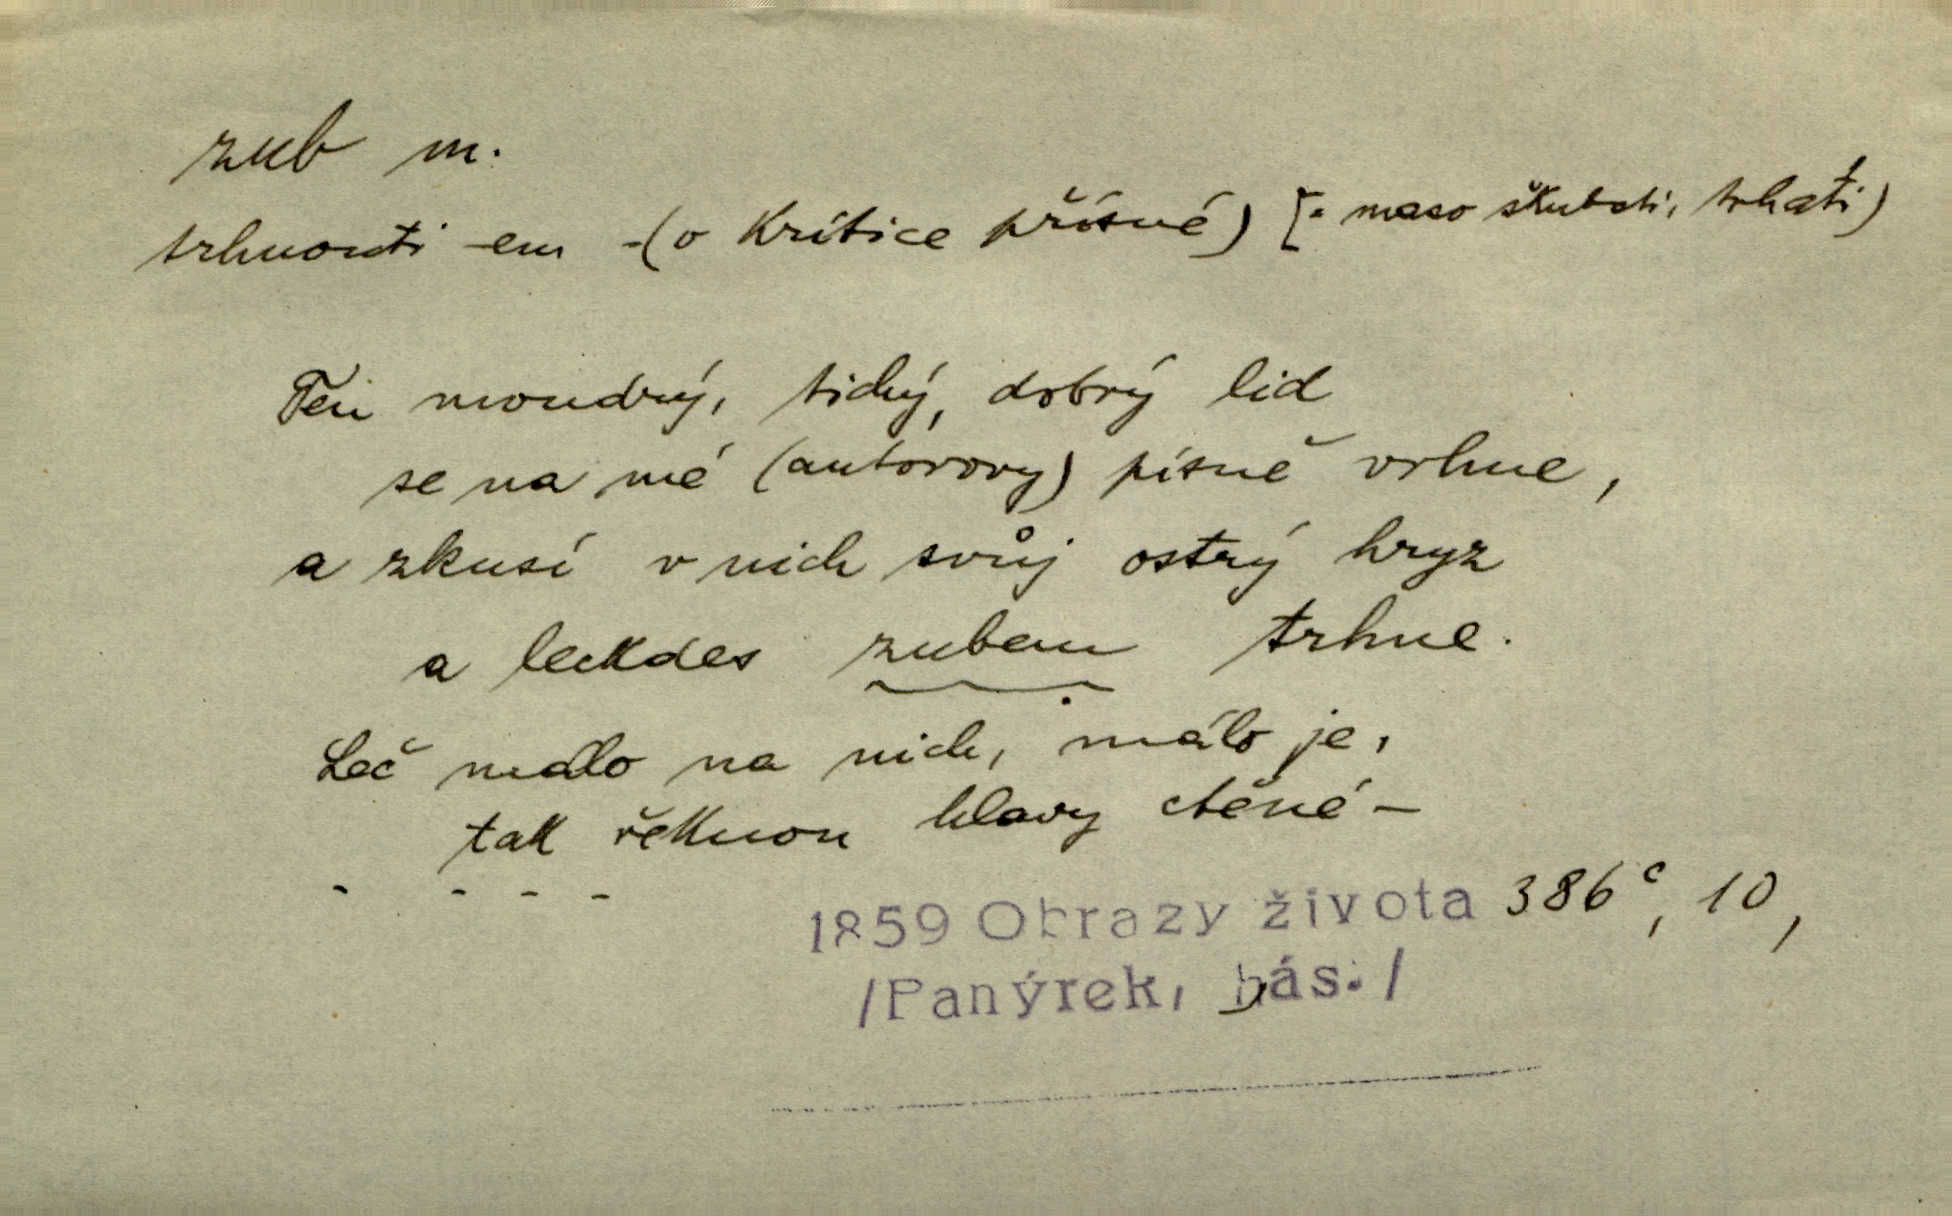 zub m.
trhnouti -em -(o kritice přísné) [: maso škubati, trhati)
Ten moudrý, tichý, dobrý lid
se na mé (autorovy) písně vrhne,
a zkusí v nich svůj ostrý hryz
a leckdes zubem trhne.
Leč málo na nich, málo je,
tak řeknou hlavy ctěné –
- - - -
1859 Obrazy života 386c, 10,
/Panýrek, bás./